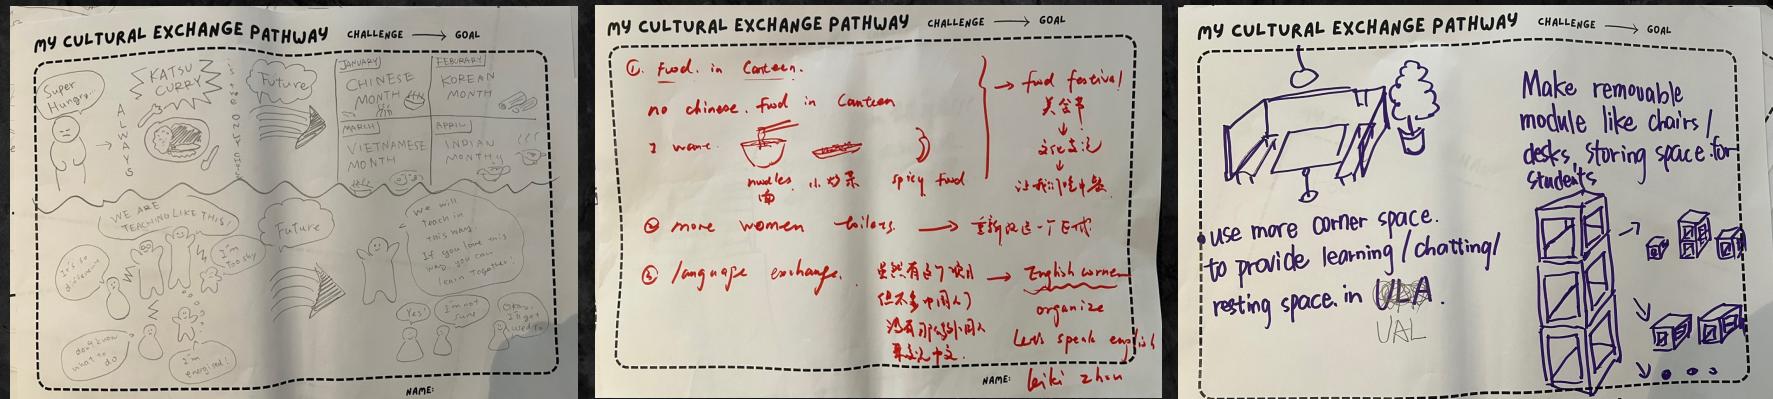 MY CULTURAL EXCHANGE PATHWAY
CHALLENGE → GOAL
Super
Hungry...
ALWAYS
KATSU
CURRY
Future
JANUARY
CHINESE
MONTH
FEBURARY
KOREAN
MONTH
MARCH
VIETNAMESE
MONTH
APRIL
INDIAN
MONTH
WE ARE
TEACHING LIKE THIS!
It's so
different!
I'm
too shy
don't know
what to
do
I'm
energised!
Future
We will
teach in
this way.
If you love this
way, you can
learn together!
Yes!
I'm not
sure!
Okay,
I'll get
used to
NAME:
MY CULTURAL EXCHANGE PATHWAY
CHALLENGE → GOAL
① Food. in Canteen.
no chinese. food in Canteen
I want.
noodles
面
小炒菜
spicy food
→ food festival
美食节
↓
文化交流
↓
让我们吃中餐
② more women toilets. →
③ language exchange.
虽然有这个项目
→ English corner
organize
Let's speak english
NAME: kiki zhou
MY CULTURAL EXCHANGE PATHWAY
CHALLENGE → GOAL
Make removable
module like chairs/
desks, storing space for
students
• use more corner space.
to provide learning/chatting/
resting space. in ULA.
UAL